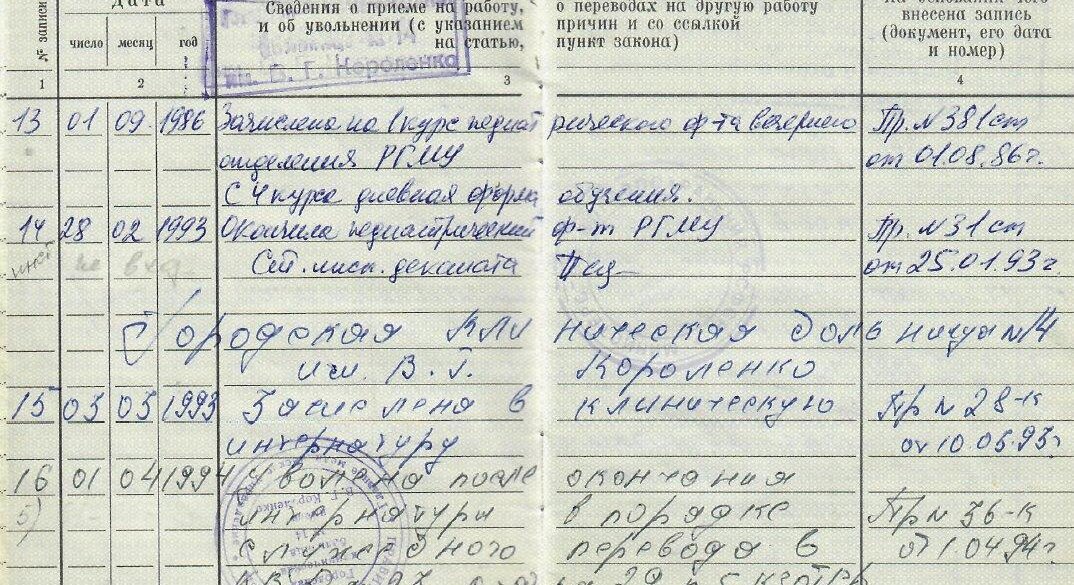 № записи
Дата
число месяц год
Сведения о приеме на работу, о переводах на другую работу
и об увольнении (с указанием причин и со ссылкой
на статью, пункт закона)
внесена запись
(документ, его дата
и номер)
им. В. Г. Короленко
1 2 3 4
13 01 09. 1986 Зачислена на 1 курс педиатрического ф-та вечернего Пр. №381 ст
отделения РГМУ от 01.08.86г.
С 4 курса дневная форма обучения.
14 28 02 1993 Окончила педиатрический ф-т РГМУ Пр. №31 ст
Ст. инсп. деканата от 25.01.93г.
Городская клиническая больница №14
им. В. Г. Короленко
15 03 03 1993 Зачислена в клиническую Пр №28-к
интернатуру от 10.03.93г
16 01 04 1994 Уволена после окончания
5) интернатуры в порядке Пр № 36-к
служебного перевода в от 1.04.94г.